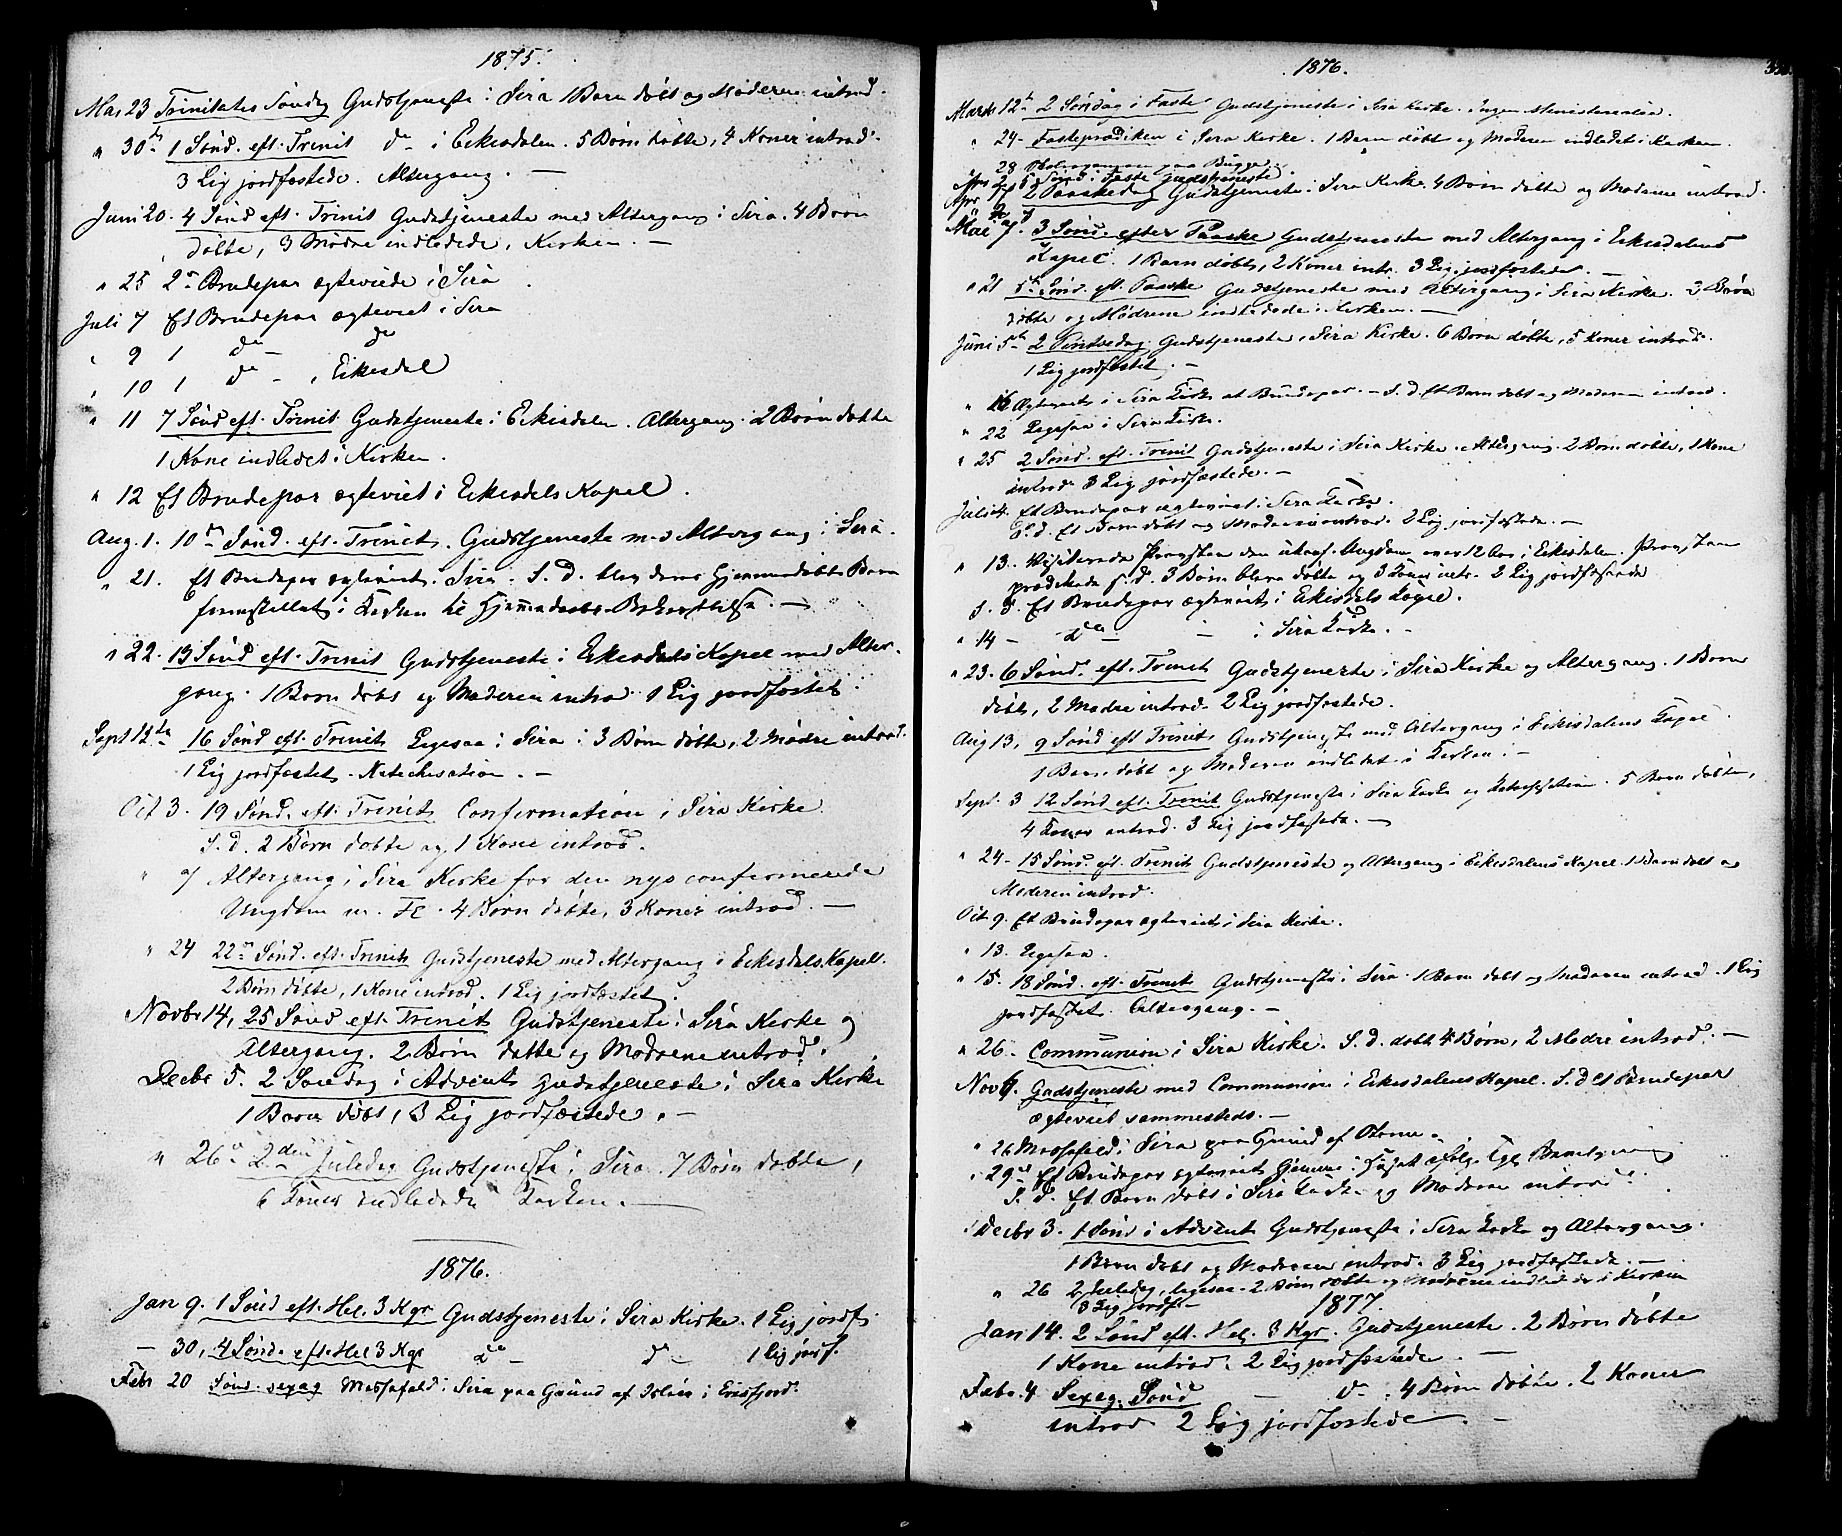 1875.
Mai 23 Trinitatis Søndag Gudstjeneste i Sira 1 Barn døbt og Moderen introd.
" 30te 1 Sønd. eft. Trinit do i Eikisdalen. 5 Børn døbte, 4 Koner introd.
3 Lig jordfæstede. Altergang. —
Juni 20. 4 Sønd eft. Trinit Gudstjeneste med Altergang i Sira. 4 Børn
døbte, 3 Mødre indledede i Kirken. —
" 25 2 Brudepar ægteviede i Sira
Juli 7 Et Brudepar ægteviet i Sira
" 9 1 do — do
" 10 1 do - i Eikisdal
" 11 7 Sønd eft. Trinit. Gudstjeneste i Eikisdalen. Altergang. 2 Børn døbte
1 Kone indledet i Kirken.
" 12 Et Brudepar ægteviet i Eikisdals Kapel.
Aug. 1. 10de Sønd. eft. Trinit. Gudstjeneste med Altergang i Sira.
" 21. Et Brudepar ægteviet i Sira. S. D. blev deres hjemmedøbte Barn
fremstillet i Kirken til Hjemmedaabs Bekræftelse. —
" 22. 13 Sønd eft. Trinit Gudstjeneste i Eikisdals Kapel med Alter-
gang. 1 Barn døbt og Moderen introd 1 Lig jordfæstet.
Sept 12te 16 Sønd eft. Trinit Ligesaa i Sira i 3 Børn døbte, 2 Mødre introd.
1 Lig jordfæstet. Katechisation. —
Oct 3. 19 Sønd. eft. Trinit. Confirmation i Sira Kirke.
S. d. 2 Børn døbte og 1 Kone introd.
" Altergang i Sira Kirke for den nys confirmerede
Ungdom m. Fl. 4 Børn døbte, 3 Koner introd. —
" 24 22 Sønd. eft. Trinit Gudstjeneste med Altergang i Eikisdals Kapel.
2 Børn døbte, 1 Kone introd. 1 Lig jordfæstet.
Novbr 14, 25 Sønd eft. Trinit Gudstjeneste i Sira Kirke og
Altergang. 2 Børn døbte og Mødrene introd.
Decbr 5. 2 Søndag i Advent Gudstjeneste i Sira Kirke
1 Barn døbt, 3 Lig jordfæstede. —
" 26 2den Juledag Gudstjeneste i Sira. 7 Børn døbte,
6 Koner indledede i Kirken. —
1876.
Jan 9. 1 Sønd eft. Hel. 3 Kgr Gudstjeneste i Sira Kirke. 1 Lig jordf.
— 30, 4 Sønd. eft. Hel 3 Kgr do — do — 1 Lig jordf.
Febr 20 Sønd. sexag Messefald i Sira paa Grund af Isløs i Erisfjord.
1876.
Marts 12te 2 Søndag i Faste Gudstjeneste i Sira Kirke. Ingen Ministerialia.
" 24- Fasteprædiken i Sira Kirke. 1 Barn døbt og Moderen indledet i Kirken.
28 paa Bugge.
Apr 2 5 Sønd i Faste Gudstjeneste.
Apr 17 2 Paaskedag Gudstjeneste i Sira Kirke. 4 Børn døbte og Mødrene introd.
Mai 7. 3 Sønd. efter Paaske Gudstjeneste med Altergang i Eikisdalens
Kapel. 1 Barn døbt, 2 Koner intr. 3 Lig jordfæstede. —
" 21 5te Sønd. eft. Paaske Gudstjeneste med Altergang i Sira Kirke. 3 Børn
døbte og Mødrene indledede i Kirken. —
Juni 5te 2 Pintsedag. Gudstjeneste i Sira Kirke. 6 Børn døbte, 5 Koner introd.
1 Lig jordfæstet. —
" 16 Ægteviet i Sira Kirke et Brudepar. — S. d. Et Barn døbt og Moderen introd.
" 22 Ligesaa i Sira Kirke.
" 25 2 Sønd. eft. Trinit Gudstjeneste i Sira Kirke. Altergang. 2 Børn døbte, 1 Kone
introd. 3 Lig jordfæstede. —
Juli 4. Et Brudepar ægteviet i Sira Kirke.
S. d. Et Barn døbt og Moderen introd. 2 Lig jordfæstede. —
" 13. Visiterede Provsten den Ungdom over 12 Aar i Eikisdalen. Provsten
prædikede s. d. 3 Børn bleve døbte og 3 Koner intr. 2 Lig jordfæstede
S. D. Et Brudepar ægteviet i Eikisdals Kapel.
" 14 - do — - i Sira Kirke. -
" 23. 6 Sønd. eft. Trinit Gudstjeneste i Sira Kirke og Altergang. 1 Barn
døbt, 2 Mødre introd. 2 Lig jordfæstede.
Aug 13, 9 Sønd eft Trinit. Gudstjeneste med Altergang i Eikisdalens Kapel.
1 Barn døbt og Moderen indledet i Kirken. —
Sept. 3 12 Sønd eft. Trinit Gudstjeneste i Sira Kirke og Katechisation. 5 Børn døbte,
4 Koner introd. 3 Lig jordfæstede. —
" 24- 15 Sønd. eft. Trinit Gudstjeneste og Altergang i Eikisdalens Kapel. 1 Barn døbt og
Moderen introd.
Oct 9. Et Brudepar ægteviet i Sira Kirke.
" 13. Ligesaa.
" 15. 18 Sønd. eft. Trinit Gudstjeneste i Sira. 1 Barn døbt og Moderen introd. 1 Lig
jordfæstet. Altergang. —
" 26. Communion i Sira Kirke. S. d. døbt 4 Børn, 2 Mødre introd. —
Nov Gudstjeneste med Communion i Eikisdalens Kapel. S. d Et Brudepar
ægteviet sammesteds. —
" 26 Messefald i Sira paa Grund af Storm.
" 29 Et Brudepar ægteviet hjemme i Huset ifølge Kgl. Bevilgning
S. D. Et Barn døbt i Sira Kirke og Moderen introd.
Decbr 3. 1 Sønd i Advent Gudstjeneste i Sira Kirke og Altergang.
1 Barn døbt og Moderen introd. 3 Lig jordfæstede. —
" 26 2 Juledag, ligesaa. 2 Børn døbte og Mødrene indledede i Kirken
3 Lig jordf. —
1877.
Jan 14. 2 Sønd eft. Hel. 3 Kgr. Gudstjeneste. 2 Børn døbte
1 Kone introd. 2 Lig jordfæstede. —
Febr. 4 Sexag. Sønd — do. 4 Børn døbte. 2 Koner
introd 2 Lig jordfæstede. —